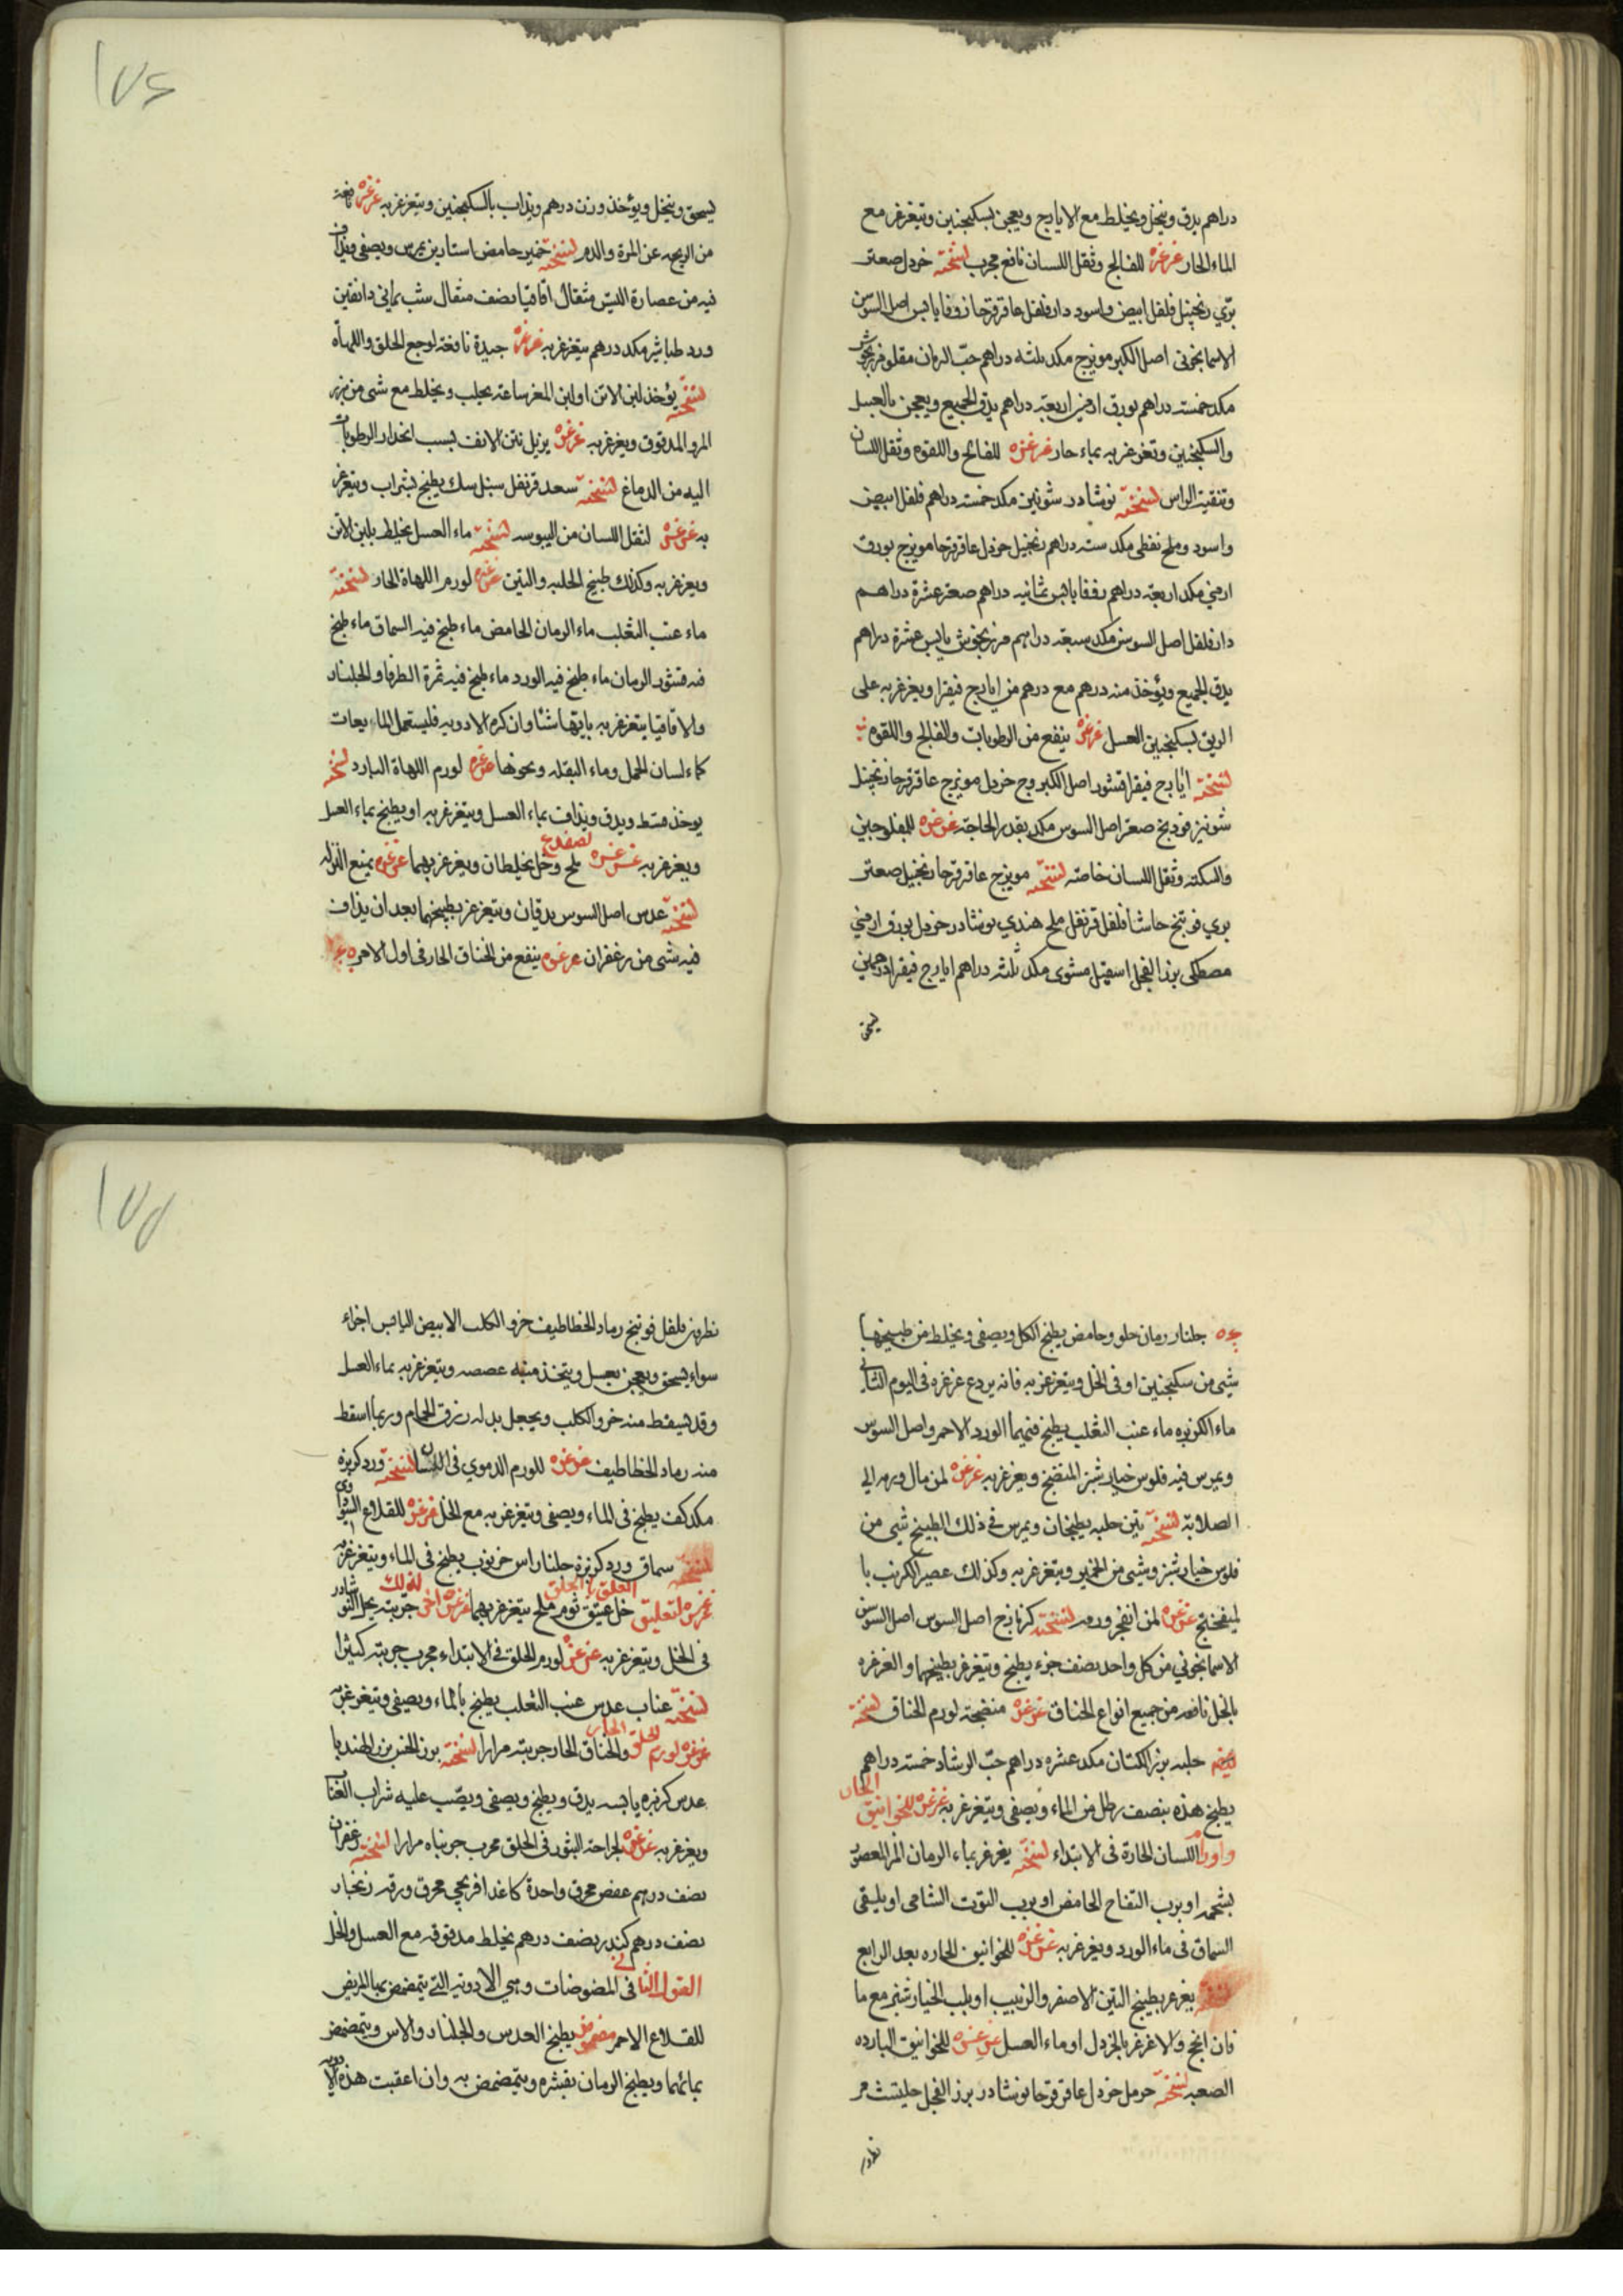 دراهم يدق وينخل ويخلط مع الايارج ويعجن بسكنجبين ويتغرغر مع
الماء الحار غرغرة للفالج وثقل اللسان نافع مجرب نسخته خردل صعتر
بري زنجبيل فلفل ابيض واسود دارفلفل عاقرقرحا زوفا يابس اصل السوسن
الاسمانجوني اصل الكبر مويزج مكد ثلثه دراهم حب الرمان مقلو مرزنجوش
مكد خمسته دراهم بورق ارمني اربعته دراهم يدق الجميع ويعجن بالعسل
والسكنجبين وتغرغر به بماء حار غرغرة للفالج واللقوه وثقل اللسان
وتنقيته الراس نسخته نوشادر شونيز مكد خمسته دراهم فلفل ابيض
واسود وملح نفطي مكد سته دراهم زنجبيل خردل عاقرقرحا مويزج بورق
ارمني مكد اربعته دراهم زوفا يابس ثمانيه دراهم صعتر عشرة دراهم
دارفلفل اصل السوسن مكد سبعته دراهم مرزنجوش يابس عشرة دراهم
يدق الجميع ويؤخذ منه درهم مع درهم من ايارج فيقرا ويغرغر به على
الريق بسكنجبين العسل غرغرة ينفع من الرطوبات والفالج واللقوه
نسخته أيارج فيقرا قشور اصل الكبر وج خردل مويزج عاقرقرحا زنجبيل
شونيز فودنج صعتر اصل السوس مكد بقدر الحاجته غرغرة للمفلوجين
والسكته وثقل اللسان خاصه نسخته مويزج عاقرقرحا زنجبيل صعتر
بري فوتنج حاشا فلفل قرنفل ملح هندي نوشادر خردل بورق ارمني
مصطكى بزر الفجل اسقيل مشوى مكد ثلثه دراهم ايارج فيقرا درهمين
يسحق
١٧٤
يسحق وينخل ويؤخذ وزن درهم ويذاب بالسكنجبين ويتغرغر به غرغرة نافعته
من الريحه عن المرة والدم نسخته خمير حامض استارين يمرس ويصفى ويذاف
فيه من عصارة التيس مثقال اقاقيا نصف مثقال شب يماني دانقين
ورد طباشير مكد درهم يتغرغر به غرغرة جيدة نافعته لوجع الحلق واللهاة
نسخته يؤخذ لبن الاتن او لبن المعز ساعته يحلب ويخلط مع شى من بزر
المرو المدقوق ويغرغر به غرغرة يزيل نتن الانف بسبب انحدار الرطوبات
اليه من الدماغ نسخته سعد قرنفل سنبل سك يطبخ بشراب ويتغرغر
به غرغرة لثقل اللسان من اليبوسه نسخته ماء العسل يخلط بلبن الاتن
ويغرغر به وكذلك طبيخ الحلبه والتين غرغرة لورم اللهاة الحار نسخته
ماء عنب الثعلب ماء الرمان الحامض ماء طبخ فيه السماق ماء طبخ
فيه قشور الرمان ماء طبخ فيه الورد ماء طبخ فيه ثمرة الطرفا والجلنار
والاقاقيا يتغرغر به بايتها شئا وان كره الادويه فليستعمل المايعات
كماء لسان الحمل وماء البقله ونحوها غرغرة لورم اللهاة البارد نسخته
يوخذ قسط ويدق ويذاف بماء العسل ويتغرغر به او يطبخ بماء العسل
ويغرغر به غرغرة لضفدع ملح وخل يخلطان ويغرغر بهما غرغرة يمنع النزله
نسخته عدس اصل السوس يدقان ويتغرغر بطبيخهما بعد ان يذاف
فيه شى من زعفران غرغرة ينفع من الخناق الحار فى اول الامر
١٧٥
جلنار رمان حلو وحامض يطبخ الكل ويصفى ويخلط من طبيخها
شي من سكنجبين او فى الخل ويتغرغر به فانه يردع غرغرة فى اليوم الثاني
ماء الكزبره ماء عنب الثعلب يطبخ فيهما الورد الاحمر واصل السوس
ويمرس فيه فلوس خيار شنبر المنضج ويغرغر به غرغرة لمن مال ورمه الي
الصلابة نسخته تين حلبه يطبخان ويمرس في ذلك الطبيخ شي من
فلوس خيار شنبر وشي من الخمير ويتغرغر به وكذلك عصير الكرنب با
لميفختج غرغرة لمن انفجر ورمه نسخته كزمازج اصل السوس اصل السوسن
الاسمانجوني من كل واحد نصف جزء يطبخ ويتغرغر بطبيخهما والغرغره
بالخل نافعه من جميع انواع الخناق غرغرة منضجته لورم الخناق نسخته
حلبه بزر الكتان مكد عشره دراهم حب الرشاد خمسته دراهم
يطبخ هذه بنصف رطل من الماء ويصفى ويتغرغر به غرغرة للخوانيق الحاره
واورام اللسان الحارة فى الابتداء نسخته يغرغر بماء الرمان المر المعصور
بشحمه او برب التفاح الحامض او برب التوت الشامى او يلقى
السماق فى ماء الورد ويغرغر به غرغرة للخوانيق الحاره بعد الرابع
نسخته يغرغر بطبيخ التين الاصفر والزبيب او بلب الخيار شنبر مع ما
فان انجح والا غرغر بالخردل او ماء العسل غرغرة للخوانيق البارده
الصعبه نسخته حرمل خردل عاقرقرحا نوشادر بزر الفجل حلتيت مر
نطرون
نطرون فلفل فوتنج رماد الخطاطيف خرو الكلب الابيض اليابس اجزاء
سواء يسحق ويعجن بعسل ويتخذ منه عصصه ويتغرغر به بماء العسل
وقد يسقط منه خرو الكلب ويجعل بدله زرق الحمام وربما اسقط
منه رماد الخطاطيف غرغرة للورم الدموي فى اللسان نسخته ورد كزبره
مكد كف يطبخ فى الماء ويصفى ويتغرغر به مع الخل غرغرة للقلاع السوداوي
نسخته سماق ورد كزبره جلنار اس خرنوب يطبخ فى الماء ويتغرغر به
غرغرة لتعليق العلق بالحلق خل عتيق ثوم ملح يتغرغر بهما غرغرة اخرى لذلك جربته يحل النوشادر
فى الخل ويتغرغر به غرغرة لورم الحلق فى الابتداء مجرب جربته كثيرا
نسخته عناب عدس عنب الثعلب يطبخ بالماء ويصفى ويتغرغر به
غرغرة لورم الحلق الحار والخناق الحار جربته مرارا نسخته بزر الخس بزر الهندبا
عدس كزبره يابسه يدق ويطبخ ويصفى ويصب عليه شراب العناب
ويغرغر به غرغرة لجراحته البثور فى الحلق مجرب جربناه مرارا نسخته زعفران
نصف درهم عفص محرق واحدة كاغد افرنجي محرق ورقه زنجار
نصف درهم كندر نصف درهم يخلط مدقوقه مع العسل والخل
القول الثاني فى المضوضات وهي الادويه التي يتمضمض بها المريض
للقلاع الاحمر مضموض يطبخ العدس والجلنار والاس ويتمضمض
بمائهما ويطبخ الرمان بقشره ويتمضمض به وان اعقبت هذه الادويه